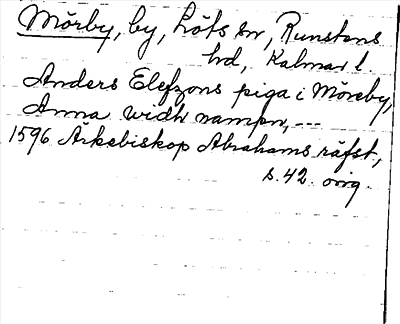 Mörby, by, Löts sn, Runstens
hd, Kalmar l.
Anders Elefzons piga i Möreby,
Anna widh nampn, ---
1596 Ärkebiskop Abrahams räfst,
s. 42. orig.